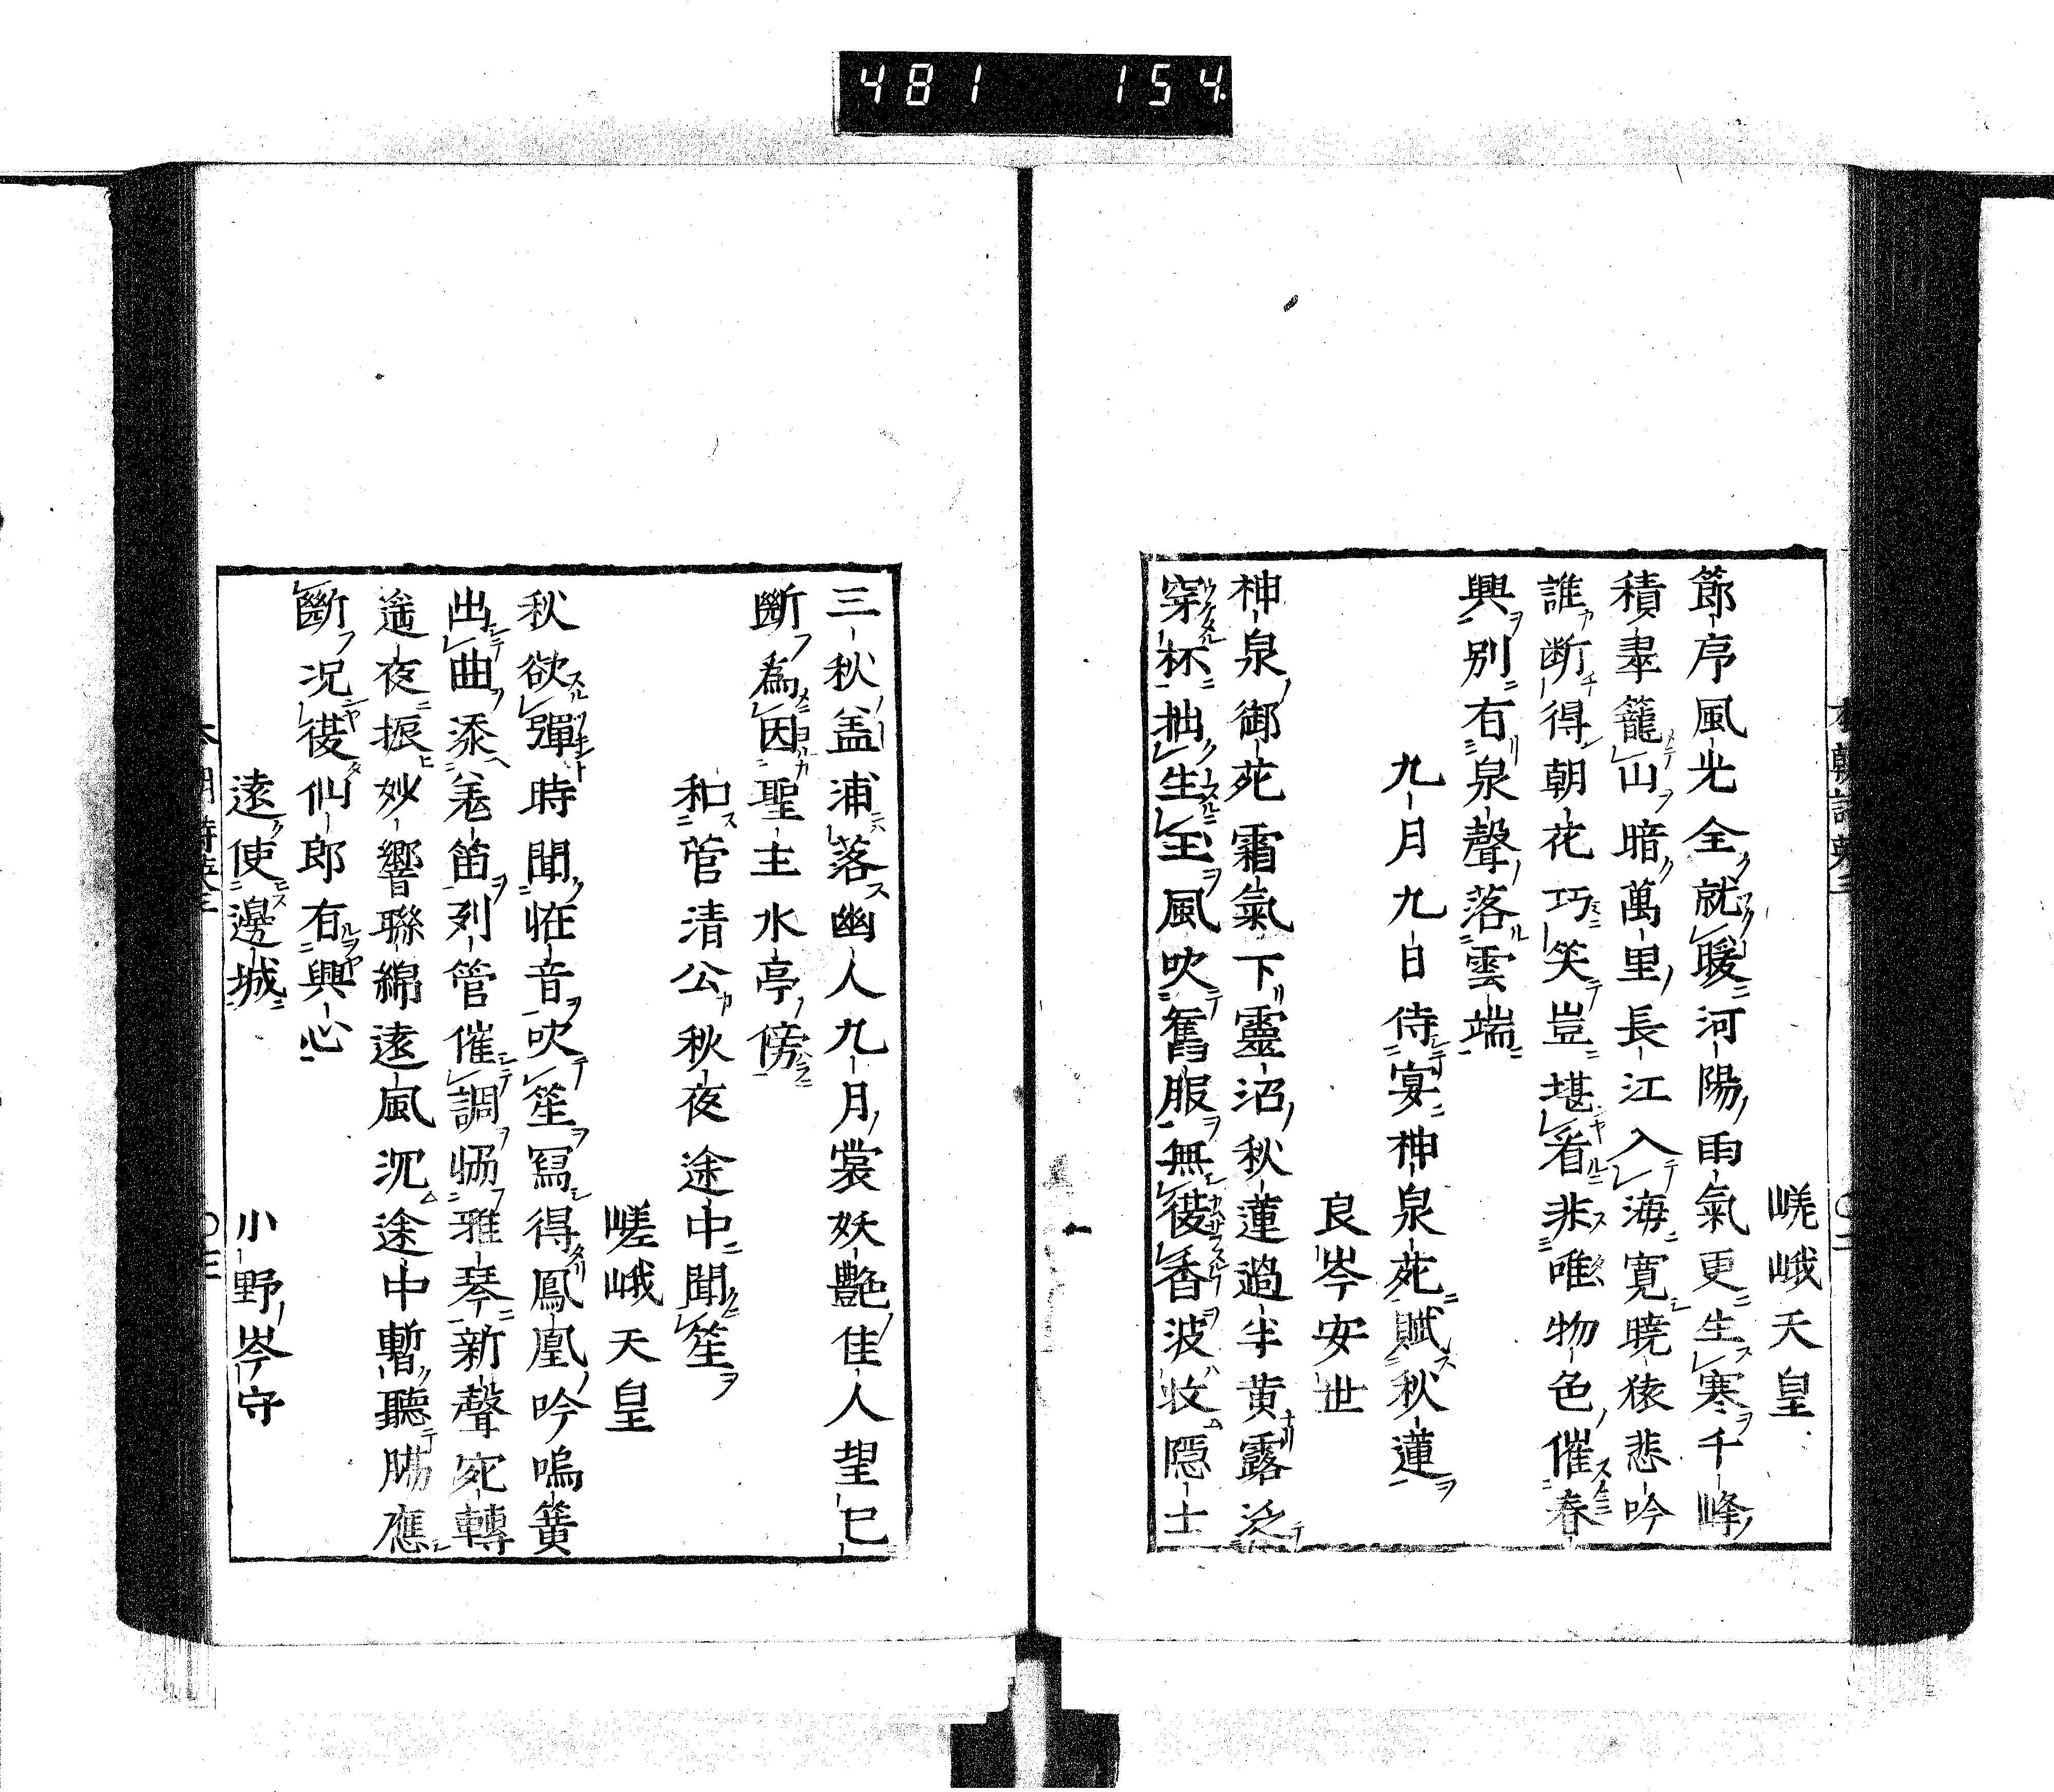 481 154
嵯峨天皇
節序風光全就暖河陽雨氣更生寒千峰
積翠籠山暗萬里長江入海寛曉猿悲吟
誰断得朝花巧笑豈堪看非唯物色催春
興別有泉聲落雲端
九月九日侍宴神泉苑賦秋蓮
良岑安世
神泉御苑霜氣下靈沼秋蓮過半黄露泛
穿杯拙生玉風吹舊服無復香波收隱士
三秋盖浦落幽人九月裳妖艶佳人望已
斷為因聖主水亭傍
和菅清公秋夜途中聞笙
嵯峨天皇
秋欲彈時聞怪音吹笙冩得鳳凰吟嗚簧
出曲添羌笛列管催調雅琴新聲宛轉
遥夜振妙響聯綿遠風沉途中暫聽腸應
斷况復仙郎有興心
遠使邊城
小野岑守